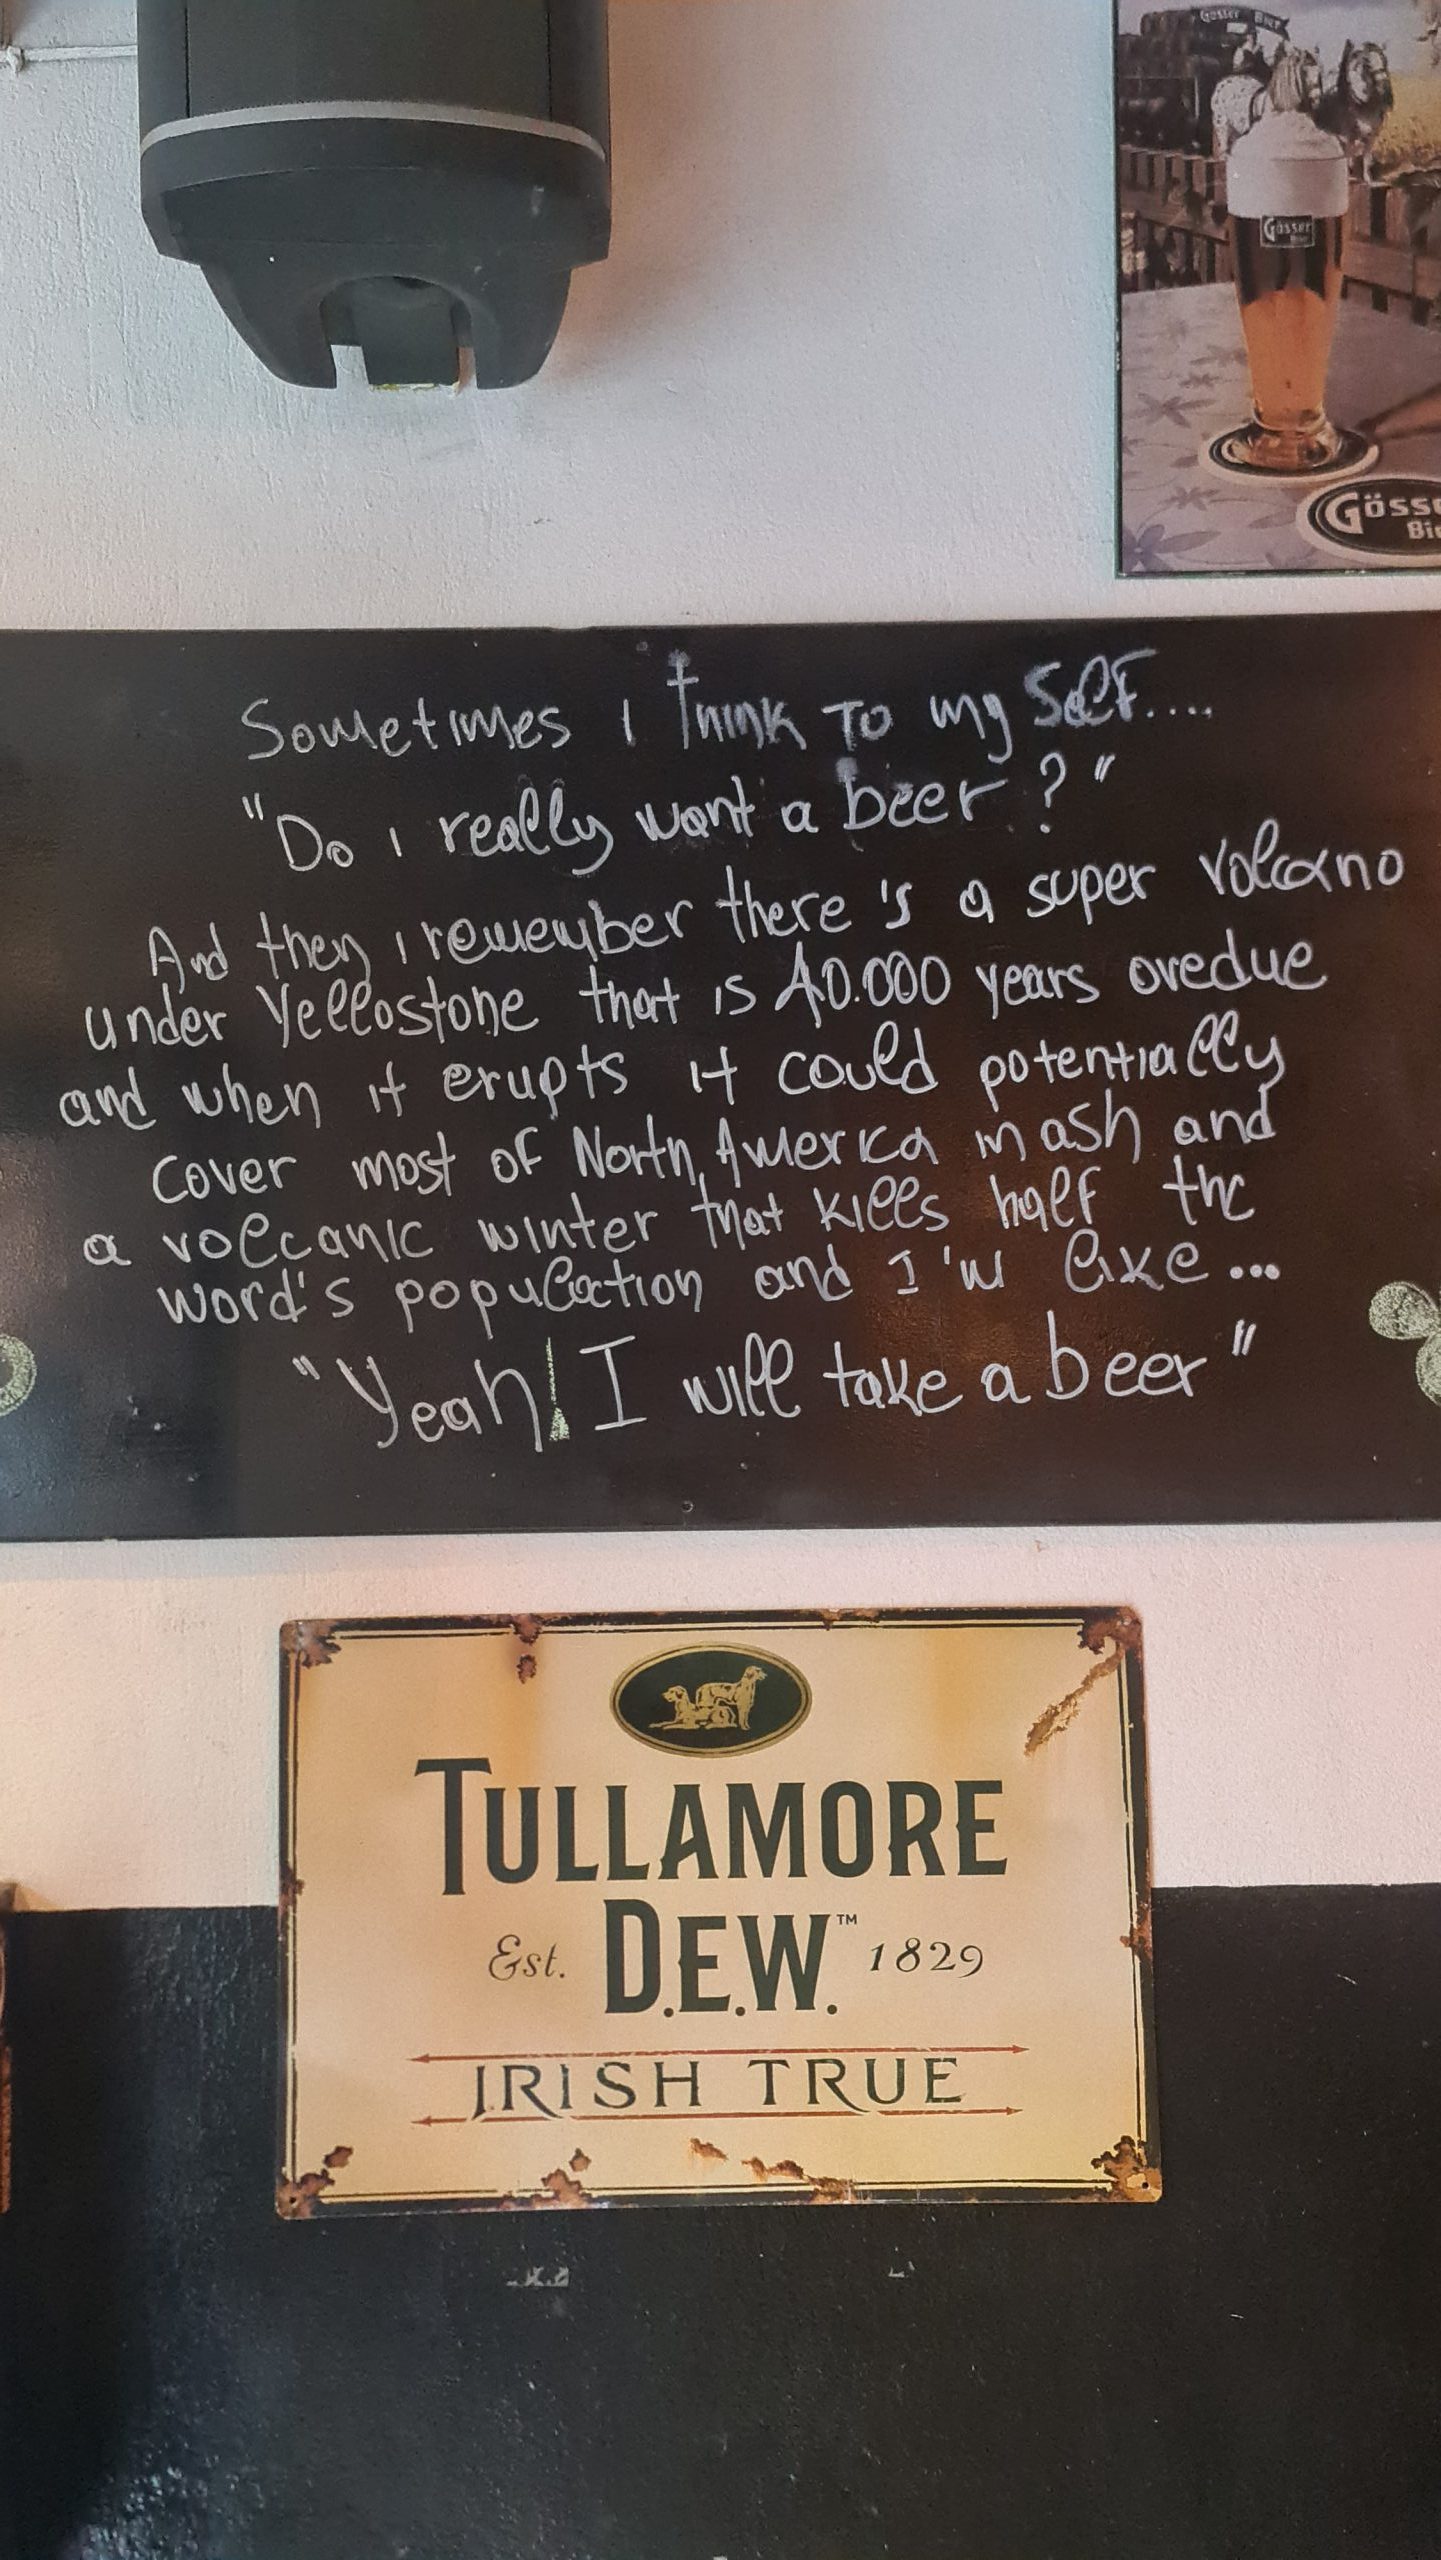 Gösser Bier
Gösser
Bier
Göss
Bi
Sometimes I think to my self....
"Do I really want a beer?"
And then I remember there's a super volcano
under Yellostone that is 40.000 years ovedue
and when it erupts it could potentially
cover most of North America in ash and
a volcanic winter that kills half the
word's population and I'm like...
"Yeah! I will take a beer"
TULLAMORE
Est. D.E.W.™ 1829
IRISH TRUE